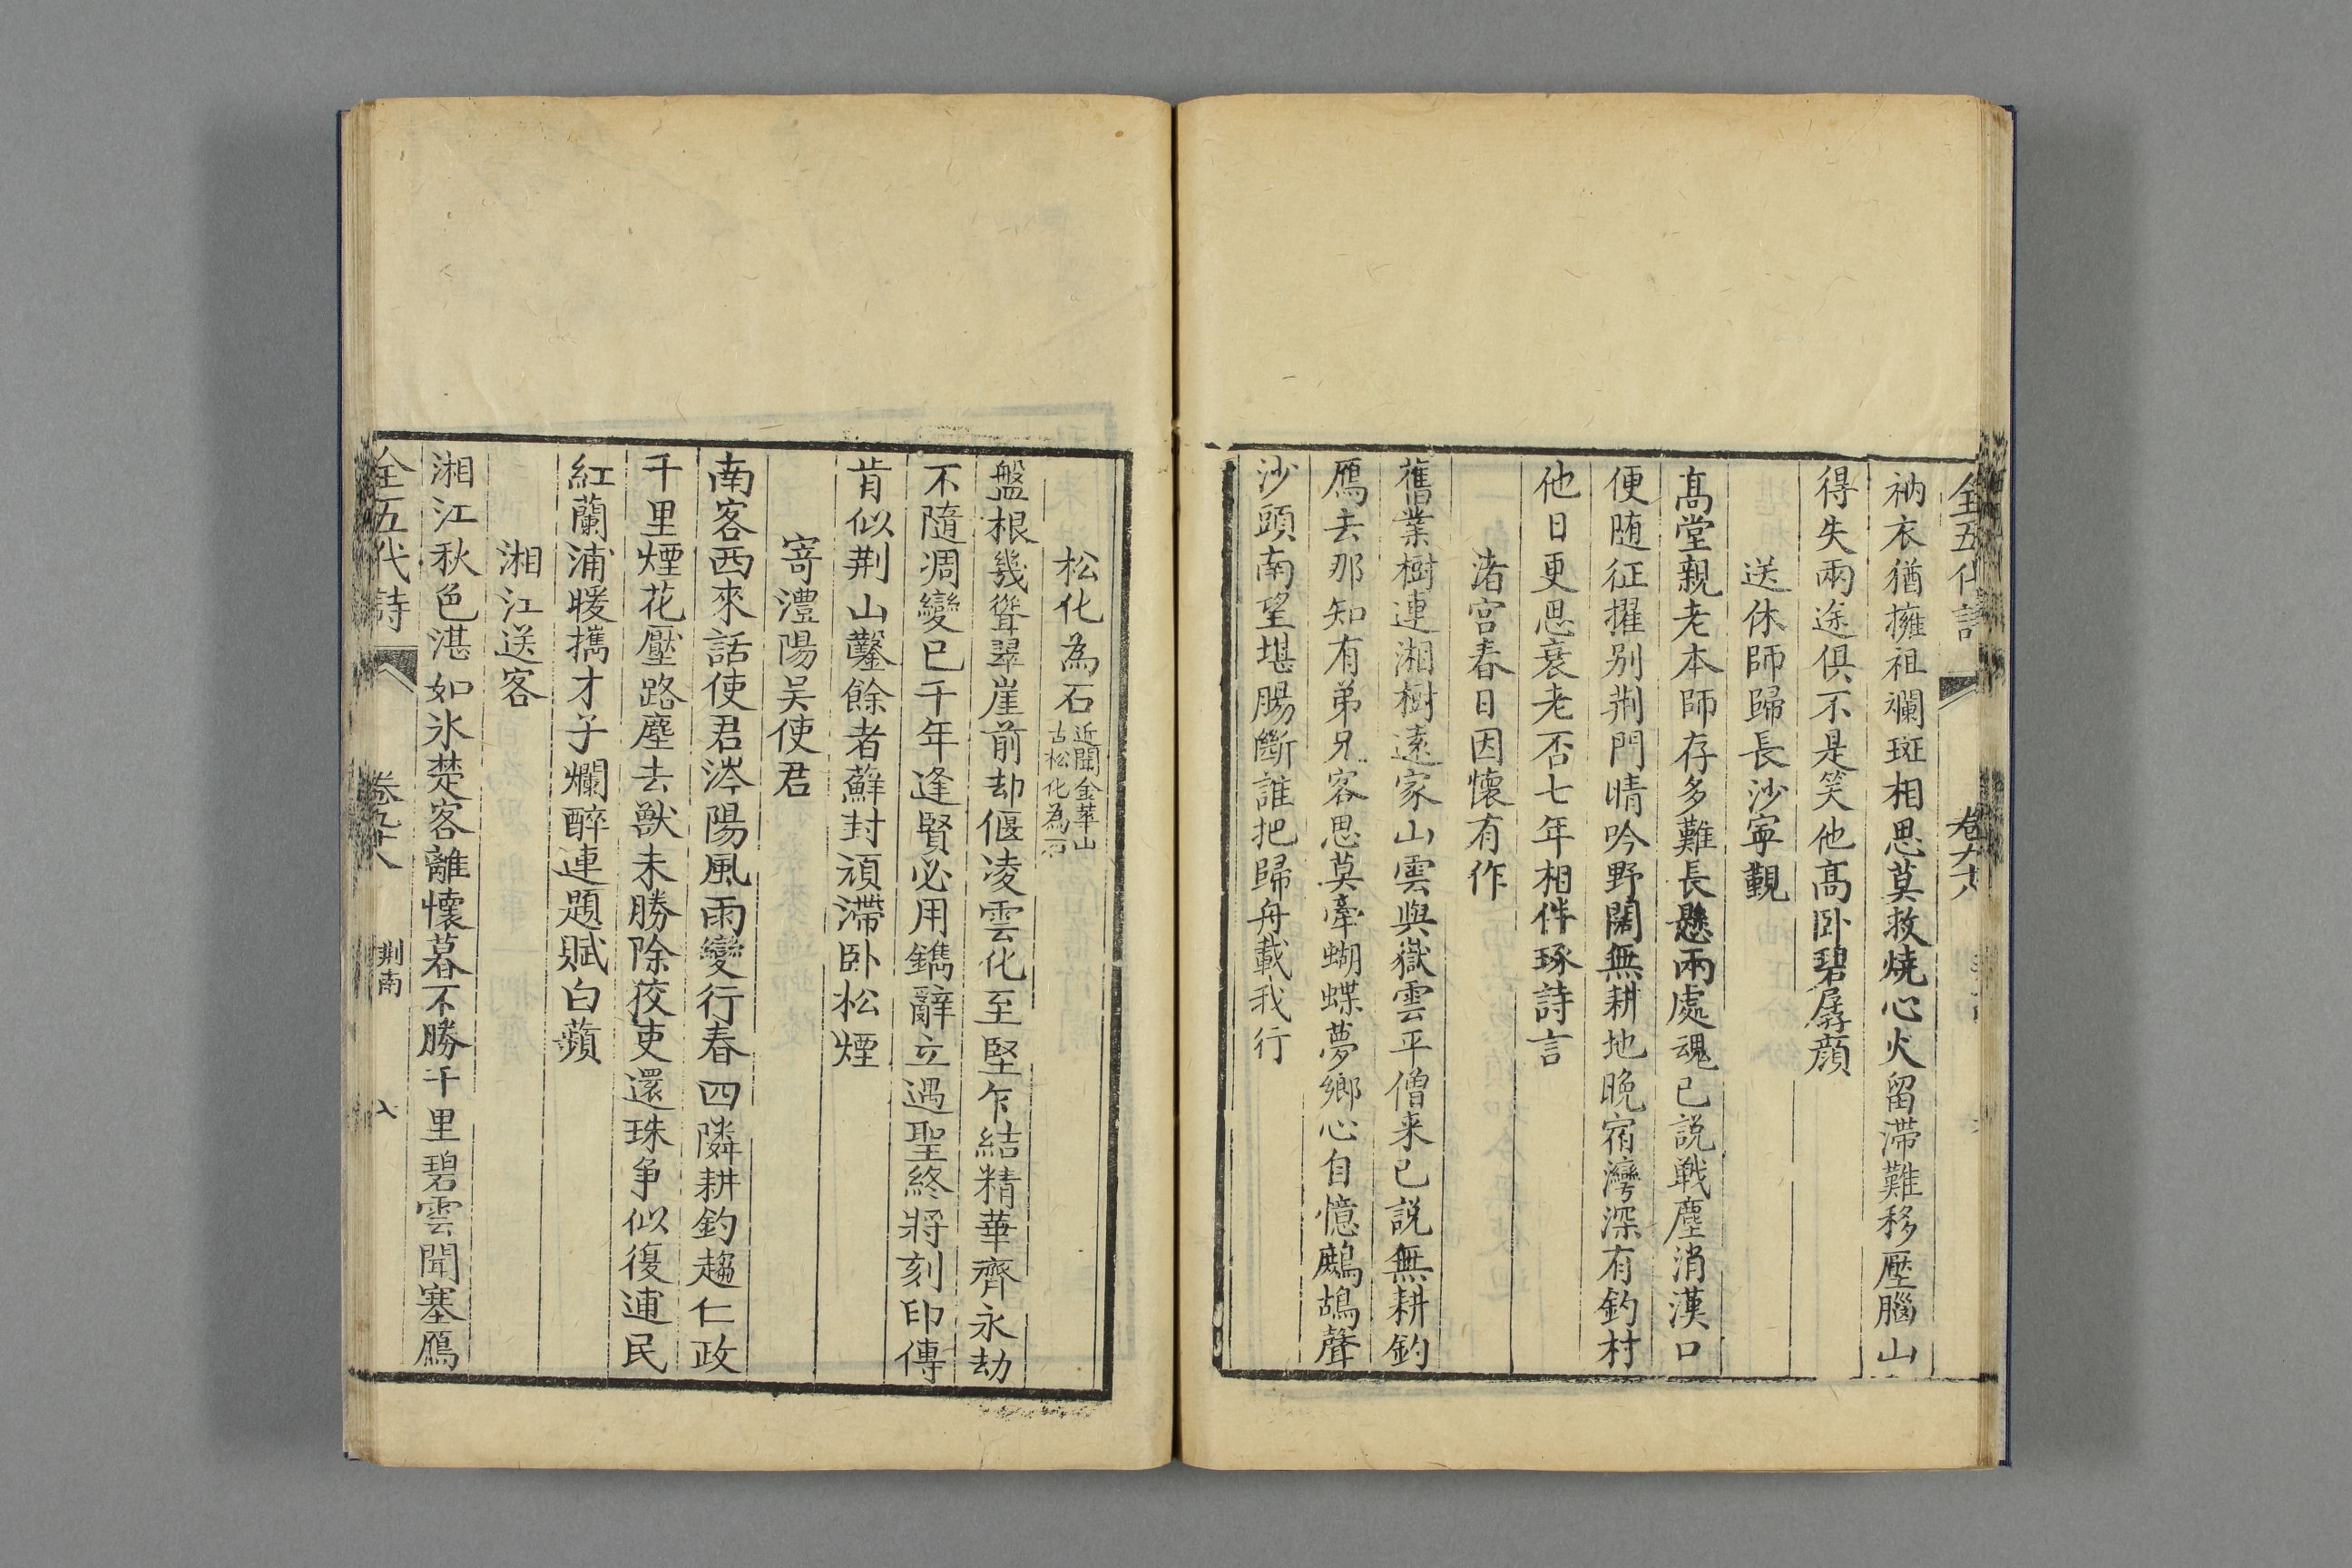 全五代詩
衲衣猶擁祖襴斑相思莫救燒心火留滯難移壓腦山
得失兩途俱不是笑他高卧碧孱顔
送休師歸長沙寧覲
高堂親老本師存多難長懸兩處魂已説戰塵消漢口
便随征擢别荆門晴吟野闊無耕地晚宿灣深有釣村
他日更思衰老否七年相伴琢詩言
渚宫春日因懷有作
舊業樹連湘樹遠家山雲與嶽雲平僧来已説無耕釣
鴈去那知有弟兄客思莫牽蝴蝶夢鄉心自憶鷓鴣聲
沙頭南望堪腸斷誰把歸舟載我行
松化為石
近聞金華山
古松化為石
盤根幾聳翠崖前却偃凌雲化至堅乍結精華齊永劫
不隨凋變已千年逢賢必用鐫辭立遇聖終將刻印傳
肯似荆山鑿餘者蘚封頑滯卧松煙
寄澧陽吴使君
南客西來話使君涔陽風雨變行春四隣耕釣趨仁政
千里煙花壓路塵去獸未勝除狡吏還珠争似復逋民
紅蘭浦暖攜才子爛醉連題賦白蘋
湘江送客
湘江秋色湛如氷楚客離懷暮不勝千里碧雲聞塞鴈
全五代詩
荆南
八